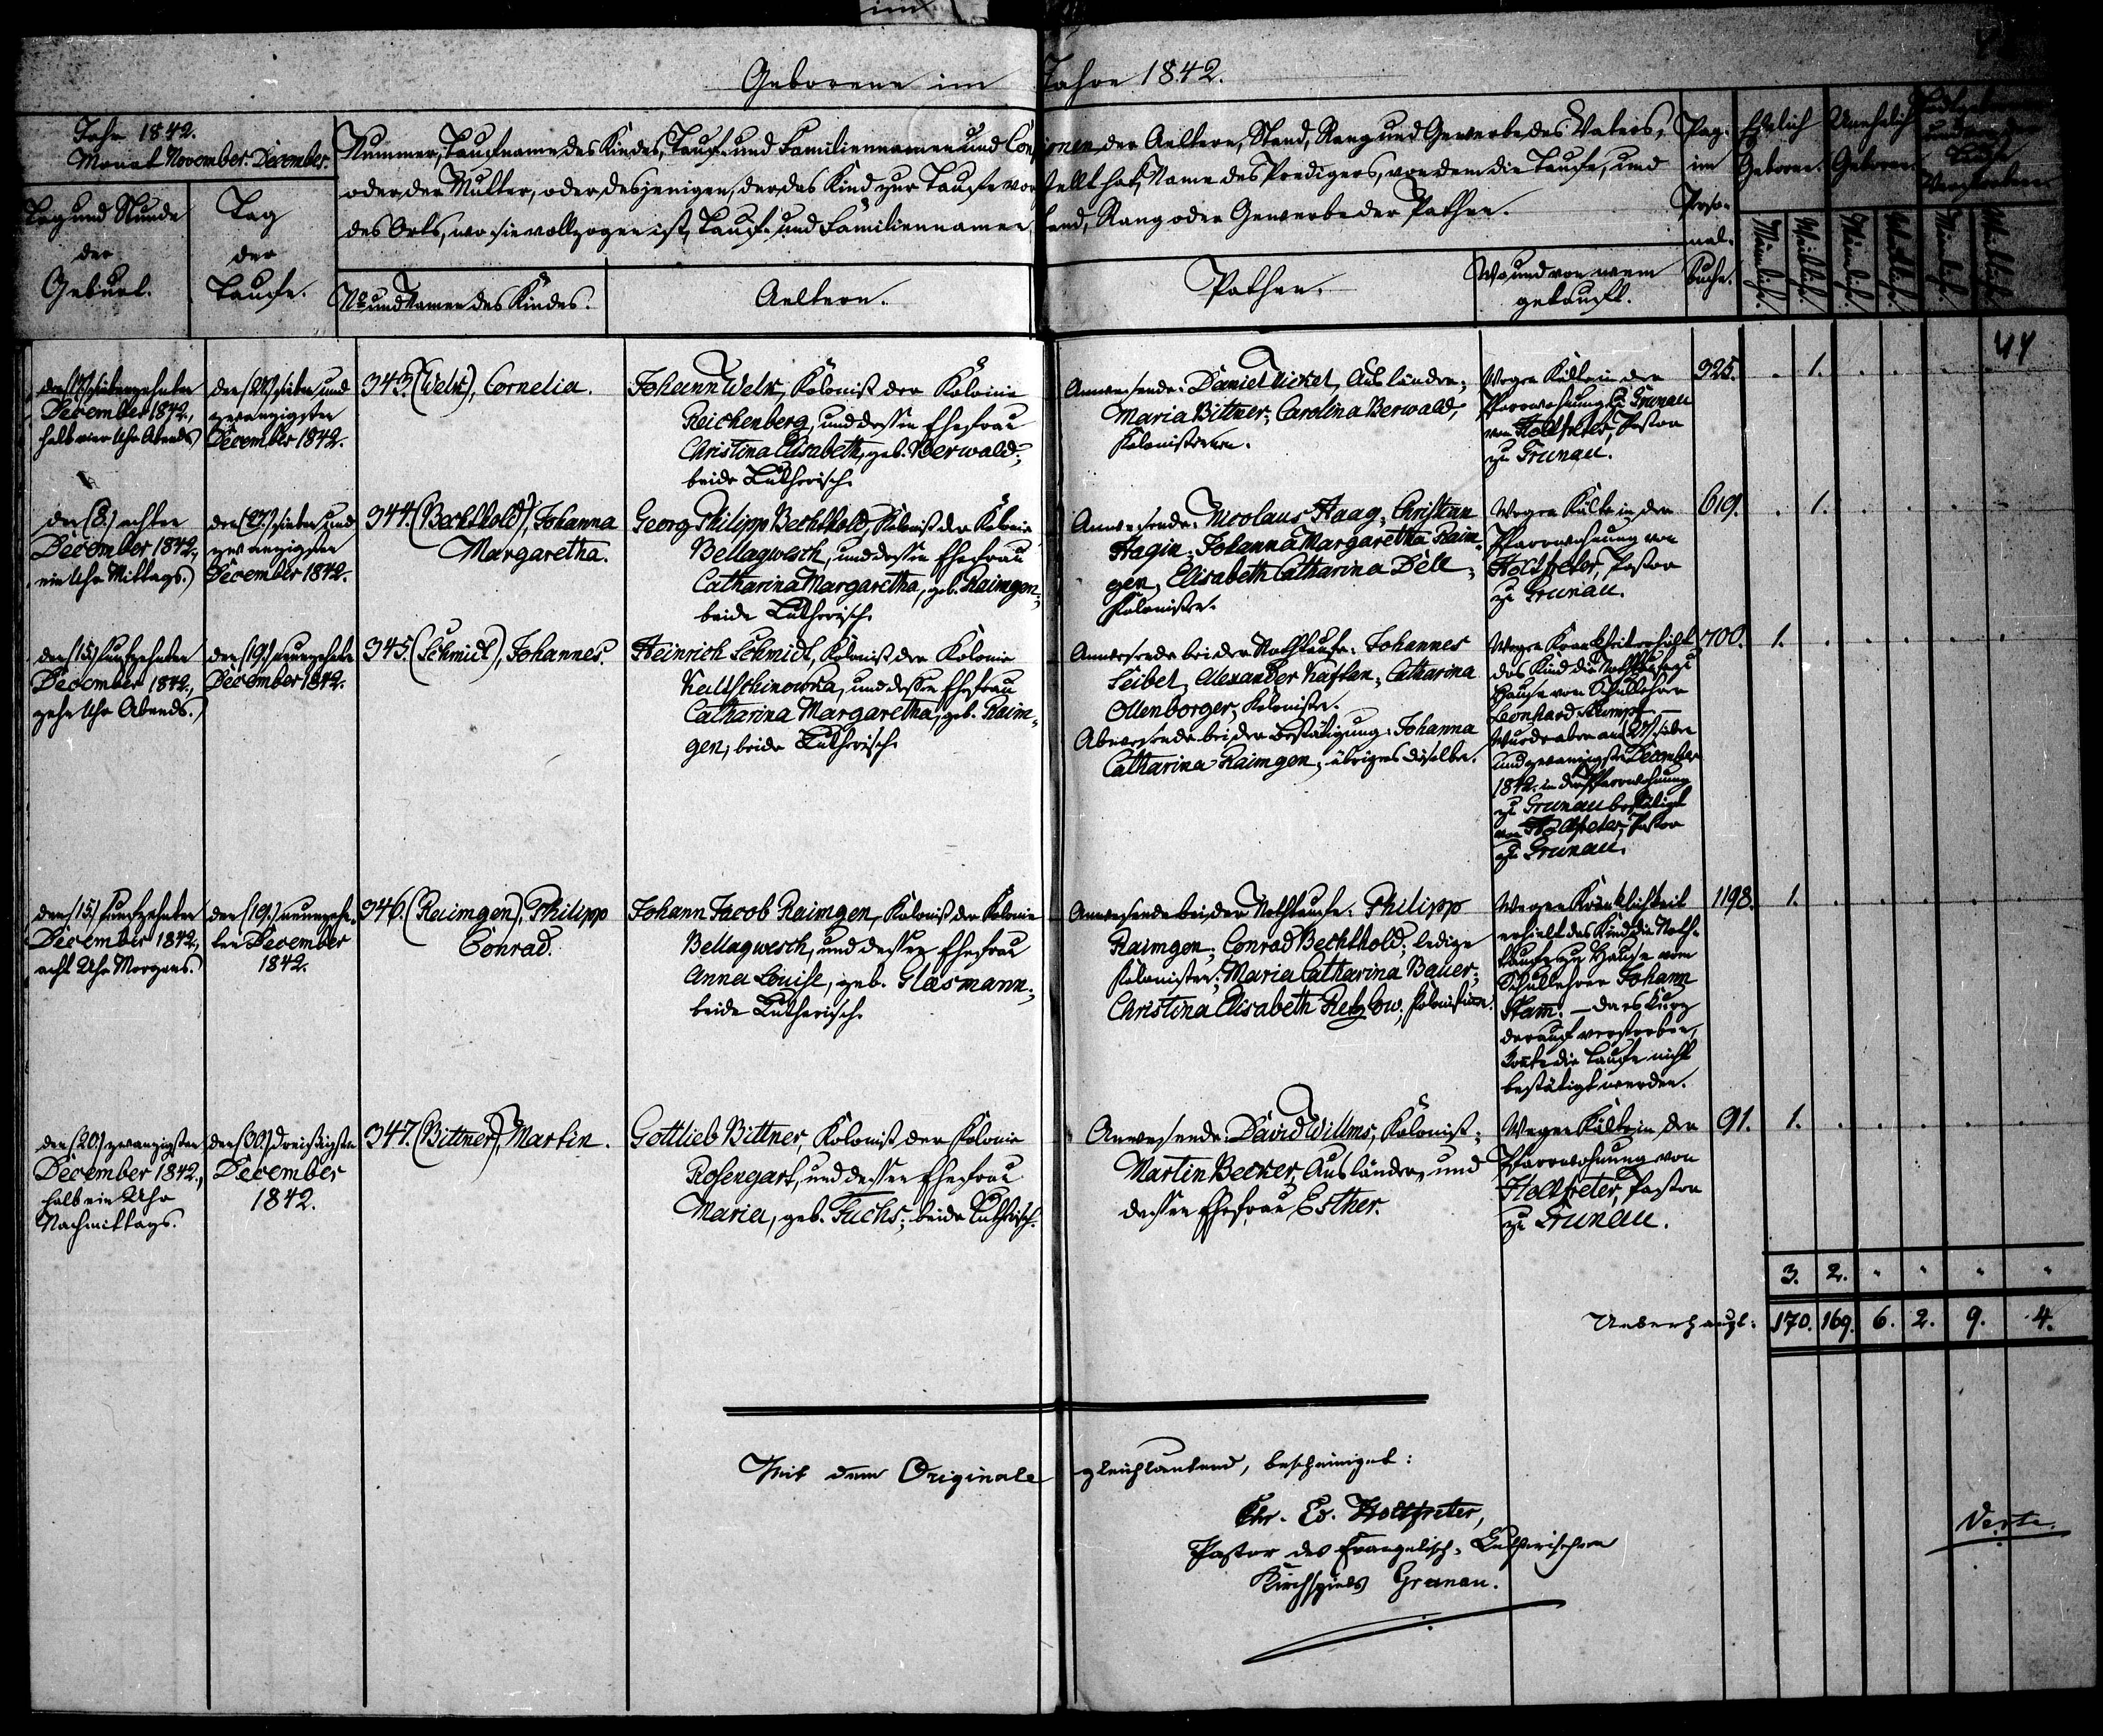 Geborene im Jahre 1842.
Jahr 1842.
Monat November. December.
Tag und Stunde
der
Geburt.
Tag
der
Taufe.
Nummer, Taufname des Kindes, Tauf- und Familiennamen und Confessionen der Aeltern, Stand, Rang und Gewerbe des Vaters,
oder der Mutter, oder desjenigen, der das Kind zur Taufe vorstellt hat, Name des Predigers, von dem die Taufe, und
des Orts, wo sie vollzogen ist, Tauf- und Familiennamen, Stand, Rang oder Gewerbe der Pathen.
No und Namen des Kindes.
Aeltern.
Pathen.
Wo und von wem
getauft.
Pag.
im
Perso-
nal-
buche.
Ehelich
Geboren.
Unehelich
Geboren.
Männlich.
Weiblich.
Männlich.
Weiblich.
Männlich.
Weiblich.
44
den (17.) siebenzehnten
December 1842.,
halb vier Uhr Abends
den (27.) sieben und
zwanzigsten
December 1842.
343. (Welk), Cornelia.
Johann Welk, Kolonist der Kolonie
Reichenberg, und dessen Ehefrau
Christina Elisabeth, geb. Berwald;
beide Lutherisch.
Anwesende: Daniel Nickel, Ausländer;
Maria Bittner; Carolina Berwald,
Kolonistinnen.
Wegen Kälte in der
Pfarrwohnung zu Grunau
von Holtfreter, Pastor
zu Grunau.
325. . 1. . . . .
den (8.) achten
December 1842.,
ein Uhr Mittags.
den (27.) sieben und
zwanzigsten
December 1842.
344. (Bechthold), Johanna
Margaretha.
Georg Philipp Bechthold, Kolonist der Kolonie
Bellagwesch, und dessen Ehefrau
Catharina Margaretha, geb. Raimgen;
beide Lutherisch.
Anwesende: Nicolaus Haag; Christian
Hagin; Johanna Margaretha Raim-
gen; Elisabeth Catharina Dell;
Kolonisten.
Wegen Kälte in der
Pfarrwohnung von
Holtfreter, Pastor
zu Grunau.
619. . 1. . . . .
den (15.) funfzehnten
December 1842.,
zehn Uhr Abends.
den (19.) neunzehnten
December 1842.
345. (Schmidt), Johannes.
Heinrich Schmidt, Kolonist der Kolonie
Kaltschinowka, und dessen Ehefrau
Catharina Margaretha, geb. Raim-
gen; beide Lutherisch.
Anwesende bei der Nothtaufe: Johannes
Seibel; Alexander Kaftan; Catharina
Ollenborger; Kolonisten.
Abwesende bei der Bestätigung: Johanna
Catharina Raimgen; übrigens dieselben.
Wegen Krankheit erhielt
das Kind die Nothtaufe zu
Hause vom Schullehrer
Leonhard Stumpf. –
Wurde aber am (27.) sieben
und zwanzigsten December
1842. in der Pfarrwohnung
zu Grunau bestätigt
von Holtfreter, Pastor
zu Grunau.
700. 1. . . . . .
den (15.) funfzehnten
December 1842.,
acht Uhr Morgens.
den (19.) neunzehn-
ten December
1842.
346. (Raimgen), Philipp
Conrad.
Johann Jacob Raimgen, Kolonist der Kolonie
Bellagwesch, und dessen Ehefrau
Anna Louise, geb. Glasmann;
beide Lutherisch.
Anwesende bei der Nothtaufe: Philipp
Raimgen; Conrad Bechthold; ledige
Kolonisten; Maria Catharina Bauer;
Christina Elisabeth Retzlow; Kolonistinnen.
Wegen Kränklichkeit
erhielt das Kind die Noth-
taufe zu Hause vom
Schullehrer Johann
Stam̅. – Da es kurz
darauf verstorben,
kon̅te die Taufe nicht
bestätigt werden.
1198. 1. . . . . .
den (20.) zwanzigsten
December 1842.,
halb ein Uhr
Nachmittags.
den (30.) dreißigsten
December
1842.
347. (Bittner), Martin.
Gottlieb Bittner, Kolonist der Kolonie
Rosengart, und dessen Ehefrau
Maria, geb. Fuchs; beide Lutherisch.
Anwesende: David Willms, Kolonist;
Martin Becker, Ausländer, und
dessen Ehefrau, Esther.
Wegen Kälte in der
Pfarrwohnung von
Holtfreter, Pastor
zu Grunau.
91. 1. . . . . .
3. 2. " " " "
Ueberhaupt: 170. 169. 6. 2. 9. 4.
Mit dem Originale gleichlautend, bescheiniget:
Chr. Ed. Holtfreter,
Pastor des Evangelisch-Lutherischen
Kirchspiels Grunau.
Verte.